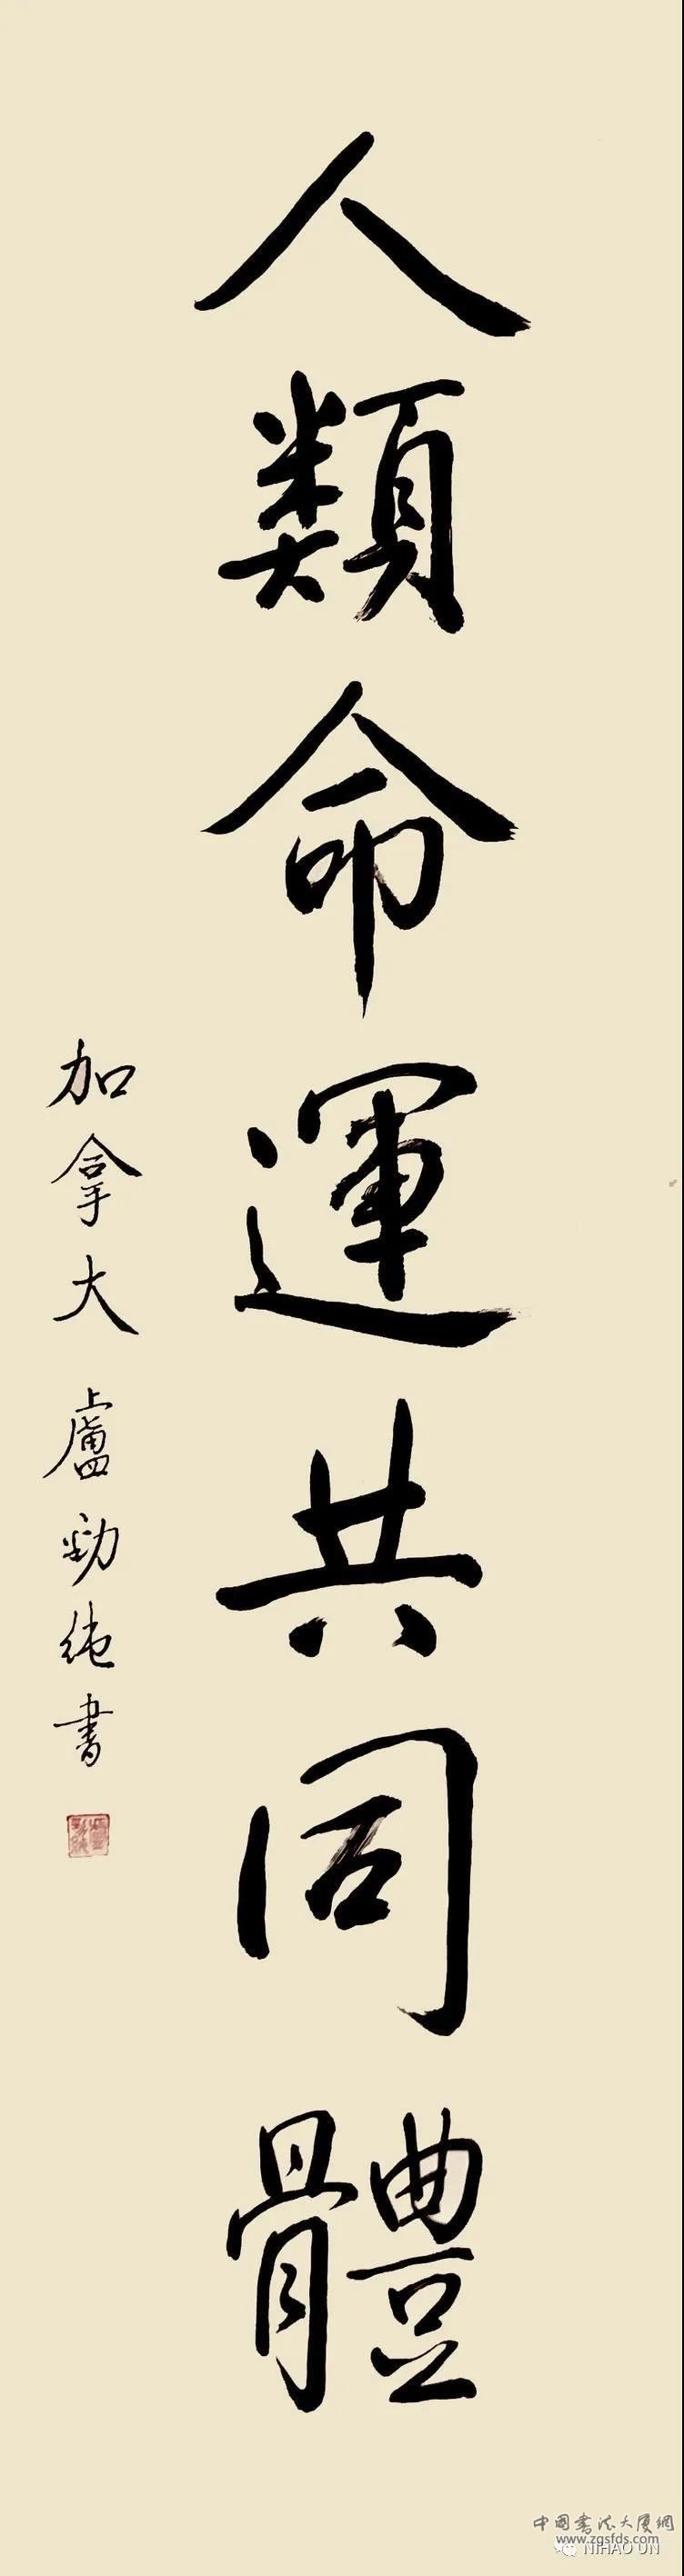 人類命運共同體
加拿大 盧勁純書
中國書法大廈網
www.zgsfds.com
NIHAO UN